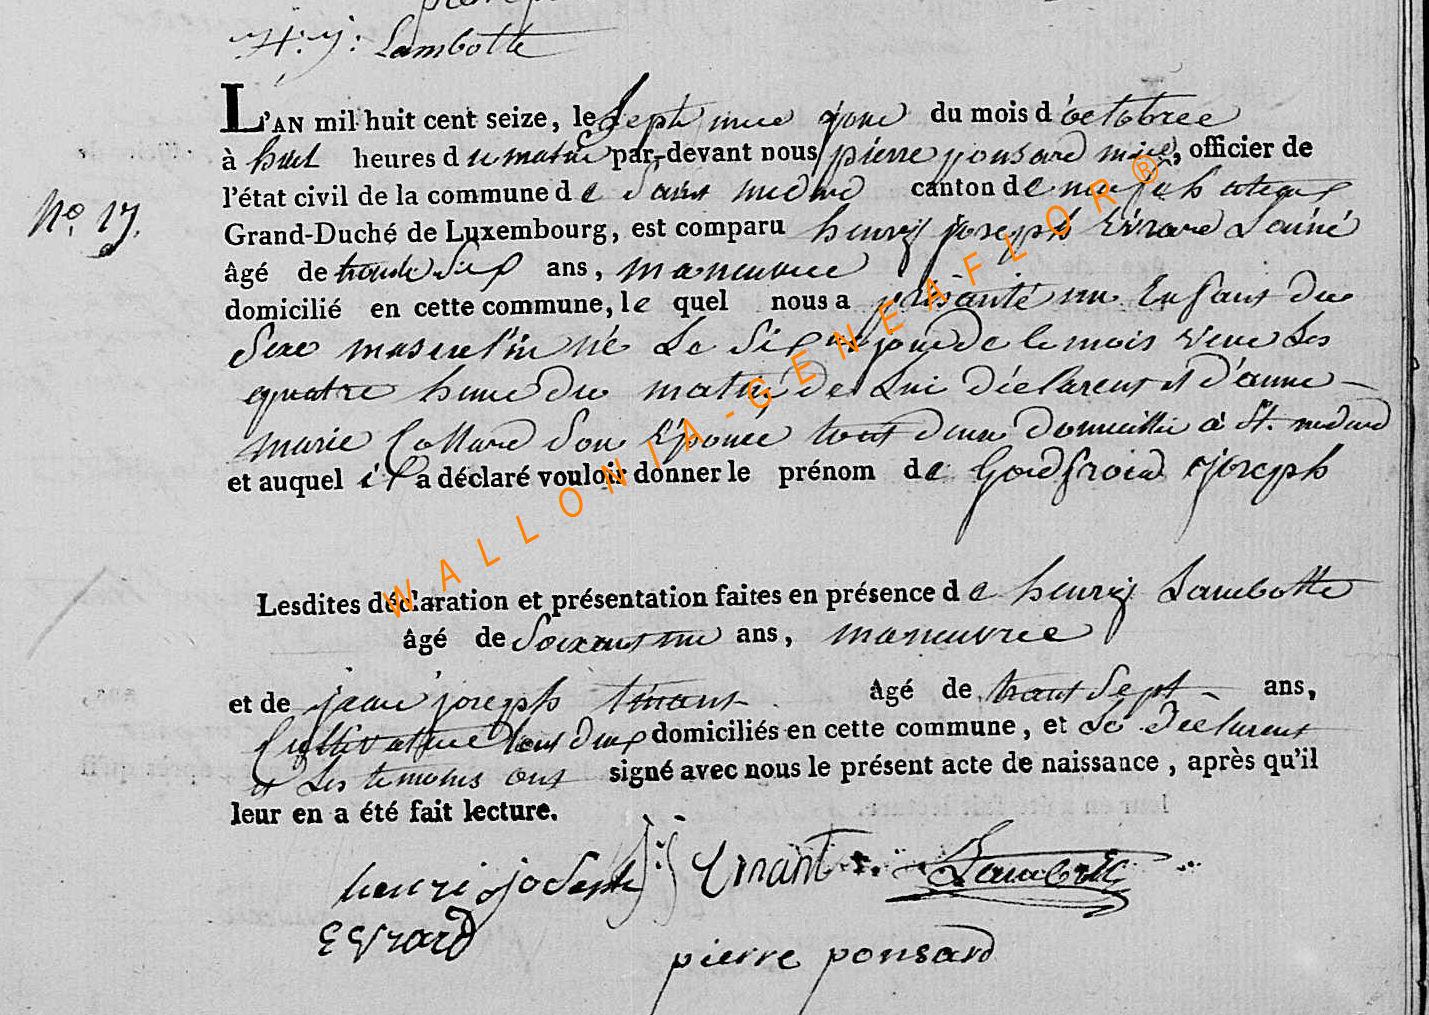 H. J. Lambotte
L'AN mil huit cent seize, le septime jour du mois d'octobree
à huit heures du matin par-devant nous pierre ponsard mire, officier de
l'état civil de la commune de Saint medard canton de neufchateaux
No. 17.
Grand-Duché de Luxembourg, est comparu henry joseph Evrard Lainé
âgé de trente Six ans, maneuvree
domicilié en cette commune, le quel nous a présanté un Enfant du
Sexe masculin né Le Six jour de le mois vers Les
quatre heure du matin de Lui déclarent et d'anne
marie Collard Son Epouse tout deux domicillié à St. medard
et auquel il a déclaré vouloir donner le prénom de Godfroid joseph
Lesdites déclaration et présentation faites en présence de henry Lambotte
âgé de Soixante ans, maneuvree
et de jean joseph tinant âgé de trant Sept ans,
Cultivature tout deux domiciliés en cette commune, et Le Declarent
et Les temoins ont signé avec nous le présent acte de naissance, après qu'il
leur en a été fait lecture.
henri joseph J: J tinant Lambotte
EVrard
pierre ponsard
WALLONIA-GENEAFLOR®